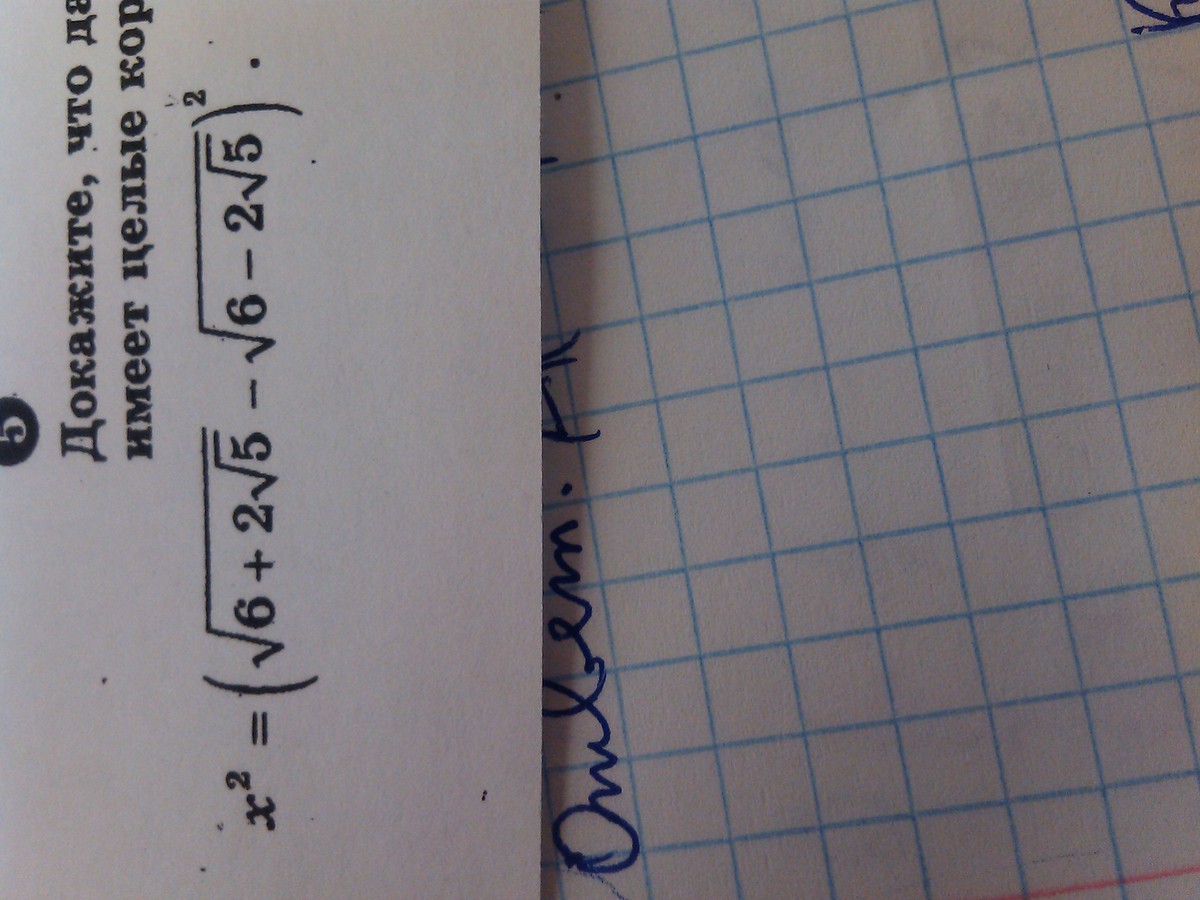 5
Докажите, что да
имеет целые кор
x² = (√(6 + 2√5) − √(6 − 2√5))².
Ответ.